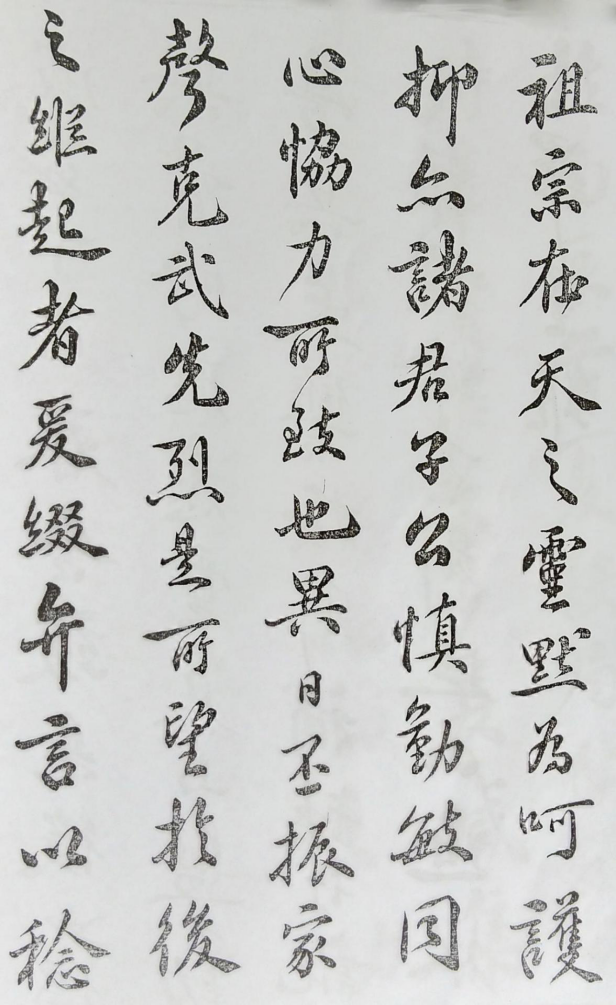 祖宗在天之靈默為呵護
抑亦諸君子公慎勤敏同
心恊力所致也異日丕振家
聲克武先烈是所望扵後
之繼起者爰綴弁言以稔